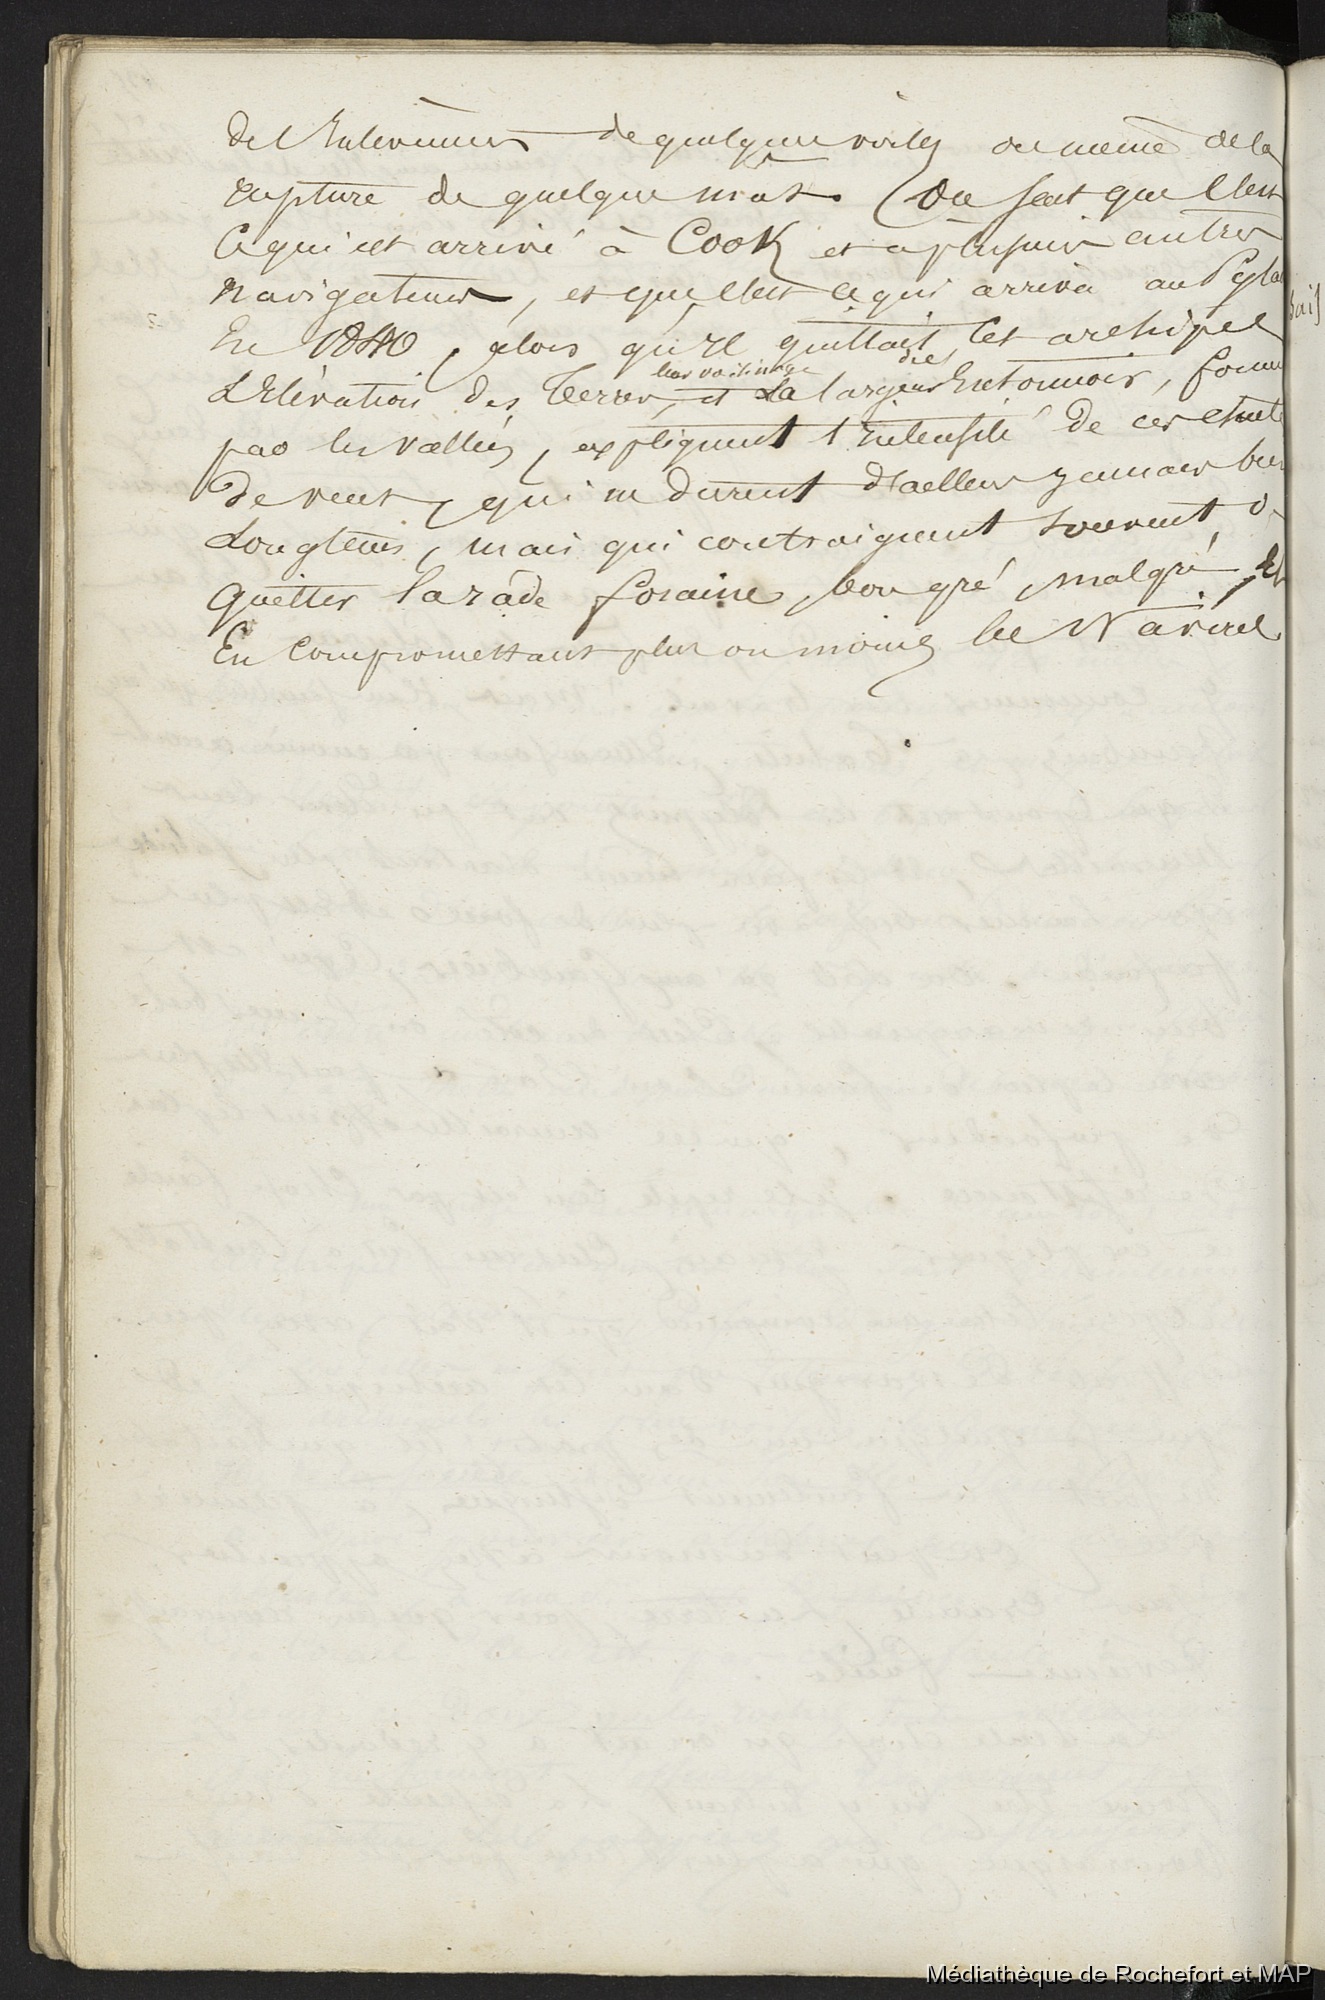 de l'Enlèvement de quelques voiles ou même de la
rupture de quelque mat. (On sait que c'est
ce qui est arrivé à Cook et a plusieurs autres
navigateurs, et que c'est ce qui arriva au Pyla
En 1840, alors qu'il quittait cet archipel
L'Elévation des Terres, leur voisinage et la largeur des Entonnoirs, formé
par les vallées, expliquent l'intensité de ces chute
de vent, qui ne durent d'ailleurs jamais bien
Longtems, mais qui contraignent souvent, à
quitter la rade foraine, bon gré, malgré, Et
En compromettant plus ou moins le Navire
Médiathèque de Rochefort et MAP